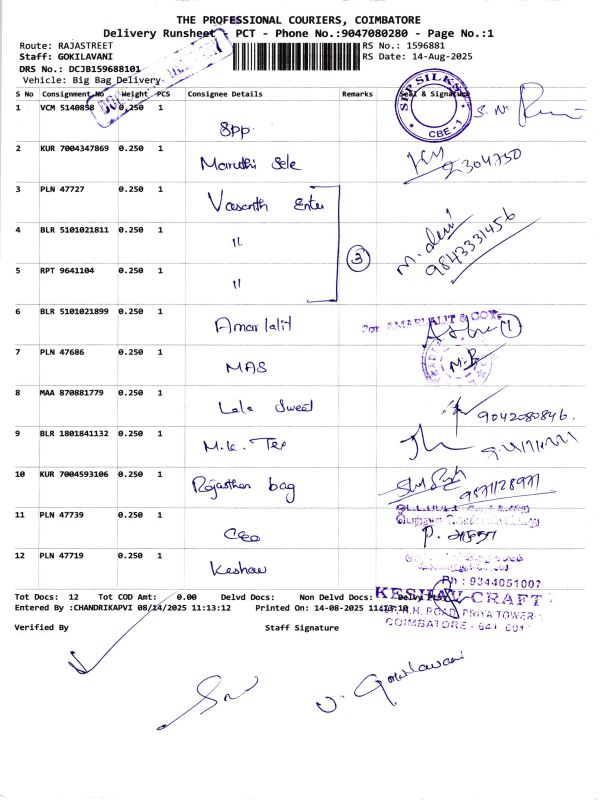 THE PROFESSIONAL COURIERS, COIMBATORE
Delivery Runsheet - PCT - Phone No.:9047080280 - Page No.:1
Route: RAJASTREET RS No.: 1596881
Staff: GOKILAVANI RS Date: 14-Aug-2025
DRS No.: DCJB159688101
Vehicle: Big Bag Delivery
S No Consignment No Weight PCS Consignee Details Remarks Seal & Signature
1 VCM 5140858 0.250 1 Spp. SPP SILKS CBE - 1 S. N.
2 KUR 7004347869 0.250 1 Maruthi Sele
3 PLN 47727 0.250 1 Vasanth Enter
4 BLR 5101021811 0.250 1 " 3 M. devi 9843331456
5 RPT 9641104 0.250 1 "
6 BLR 5101021899 0.250 1 Amar lalit For AMAR LALIT & CO. 1
7 PLN 47686 0.250 1 MAS
8 MAA 870881779 0.250 1 Lala Sweet 9042080846.
9 BLR 1801841132 0.250 1 M.k. Tex
10 KUR 7004593106 0.250 1 Rajasthan bag
11 PLN 47739 0.250 1 Ceo
12 PLN 47719 0.250 1 Keshav
Ph : 9344051007
Tot Docs: 12 Tot COD Amt: 0.00 Delvd Docs: Non Delvd Docs:
KESHAV CRAFT
Entered By :CHANDRIKAPVI 08/14/2025 11:13:12 Printed On: 14-08-2025
R.H. ROAD, PRIYA TOWER
COIMBATORE - 641 001
Verified By Staff Signature
V. Gokilavani